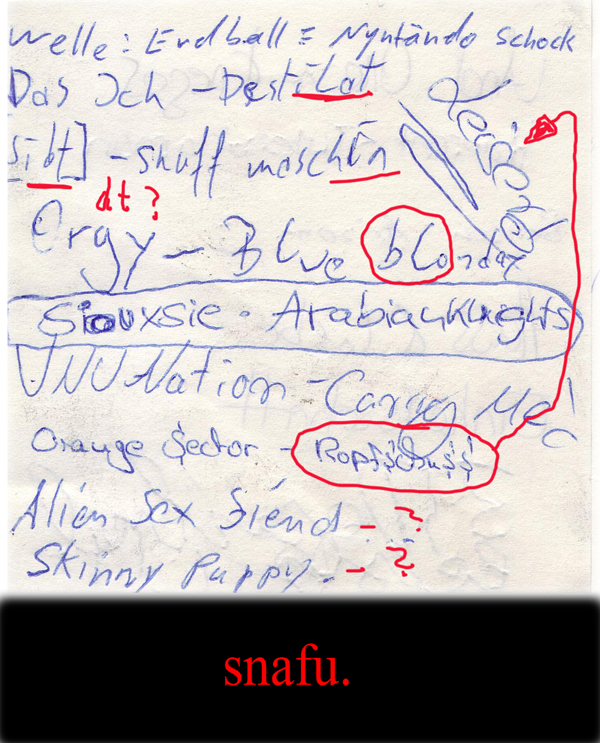 Welle: Erdball = Nyntändo Schock
Das Ich - Destilat
[sibt] - snuff maschin
dt?
Orgy - Blue blonday
Siouxsie - Arabian Knights
VNV Nation - Carry Me!
Orange Sector - Kopfschuss
Alien Sex Fiend - ?
Skinny Puppy. - ?
snafu.